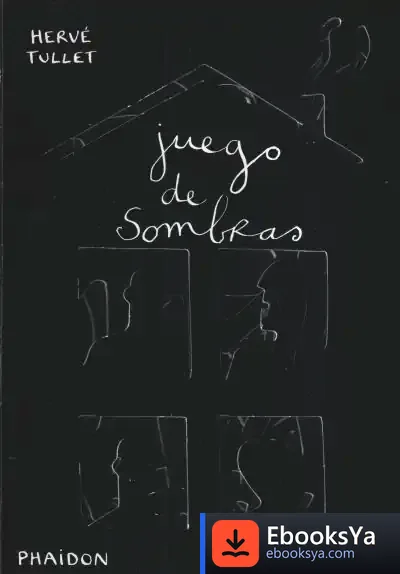 HERVÉ
TULLET
juego
de
Sombras
PHAIDON
EbooksYa
ebooksya.com